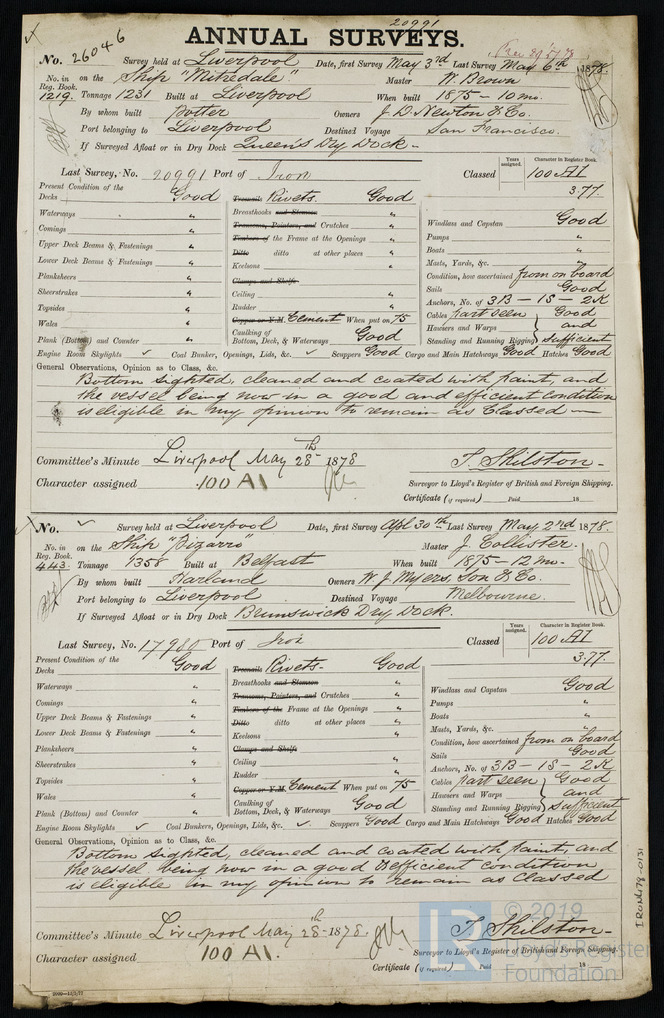 20991
ANNUAL SURVEYS.
No. 26046 Survey held at Liverpool Date, first Survey May 3rd Last Survey May 6th 1878.
No. in Reg. Book. on the Ship "Mitredale" Master W. Brown
1219. Tonnage 1231 Built at Liverpool When built 1875 - 10 mo.
By whom built Potter Owners J. D. Newton & Co.
Port belonging to Liverpool Destined Voyage San Francisco.
If Surveyed Afloat or in Dry Dock Queen's Dry Dock.-
Years assigned. Character in Register Book.
Last Survey, No. 20991 Port of Iron Classed 100 A1
3.77.
Present Condition of the
Decks Good
Waterways "
Comings "
Upper Deck Beams & Fastenings "
Lower Deck Beams & Fastenings "
Planksheers "
Sheerstrakes "
Topsides "
Wales "
Plank (Bottom) and Counter "
Treenails Rivets. Good
Breasthooks and Stemson "
Transoms, Pointers, and Crutches "
Timbers of the Frame at the Openings "
Ditto ditto at other places "
Keelsons "
Clamps and Shelfs
Ceiling "
Rudder "
Copper or Y.M. Cement When put on 75
Caulking of Bottom, Deck, & Waterways Good
Windlass and Capstan Good
Pumps "
Boats "
Masts, Yards, &c. "
Condition, how ascertained from on board
Sails Good
Anchors, No. of 3B - 1S - 2K
Cables part seen } Good
Hawsers and Warps } and
Standing and Running Rigging } sufficient
Engine Room Skylights ✓ Coal Bunker, Openings, Lids, &c. ✓ Scuppers Good Cargo and Main Hatchways Good Hatches Good
General Observations, Opinion as to Class, &c.
Bottom sighted, cleaned and coated with paint, and
the vessel being now in a good and efficient condition
is eligible in my opinion to remain as Classed
Committee's Minute Liverpool May 28th 1878 T. Shilston.-
Character assigned 100 A1 Surveyor to Lloyd's Register of British and Foreign Shipping.
Certificate (if required) Paid 18
No. Survey held at Liverpool Date, first Survey Apl 30th Last Survey May 2nd 1878.
No. in Reg. Book. on the Ship "Pizarro" Master J. Collister.
443. Tonnage 1358 Built at Belfast When built 1875 - 12 mo.
By whom built Harland Owners W. J. Myers, Son & Co.
Port belonging to Liverpool Destined Voyage Melbourne.
If Surveyed Afloat or in Dry Dock Brunswick Dry Dock.
Years assigned. Character in Register Book.
Last Survey, No. 17980 Port of Iron Classed 100 A1
3.77.
Present Condition of the
Decks Good
Waterways "
Comings "
Upper Deck Beams & Fastenings "
Lower Deck Beams & Fastenings "
Planksheers "
Sheerstrakes "
Topsides "
Wales "
Plank (Bottom) and Counter "
Treenails Rivets. Good
Breasthooks and Stemson "
Transoms, Pointers, and Crutches "
Timbers of the Frame at the Openings "
Ditto ditto at other places "
Keelsons "
Clamps and Shelfs
Ceiling "
Rudder "
Copper or Y.M. Cement When put on 75
Caulking of Bottom, Deck, & Waterways Good
Windlass and Capstan Good
Pumps "
Boats "
Masts, Yards, &c. "
Condition, how ascertained from on board
Sails Good
Anchors, No. of 3B - 1S - 2K
Cables part seen } Good
Hawsers and Warps } and
Standing and Running Rigging } sufficient
Engine Room Skylights ✓ Coal Bunkers, Openings, Lids, &c. ✓ Scuppers Good Cargo and Main Hatchways Good Hatches Good
General Observations, Opinion as to Class, &c.
Bottom sighted, cleaned and coated with paint, and
the vessel being now in a good & efficient condition
is eligible in my opinion to remain as classed
Committee's Minute Liverpool May 28th 1878. T. Shilston.-
Character assigned 100 A1. Surveyor to Lloyd's Register of British and Foreign Shipping.
Certificate (if required) Paid 18
IRON478-0131
© 2019
Lloyd's Register
Foundation